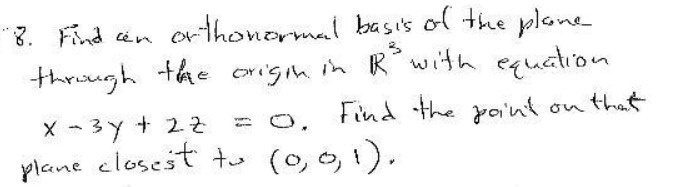 8. Find an orthonormal basis of the plane
through the origin in R³ with equation
x - 3y + 2z = 0. Find the point on that
plane closest to (0, 0, 1).